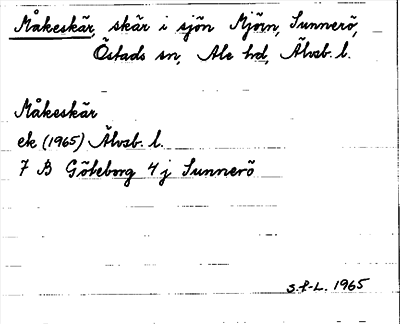 Måkeskär, skär i sjön Mjörn, Sunnerö,
Östads sn, Ale hd, Älvsb. l.
Måkeskär
ek (1965) Älvsb. l.
7 B Göteborg 4 j Sunnerö
S.f-L. 1965